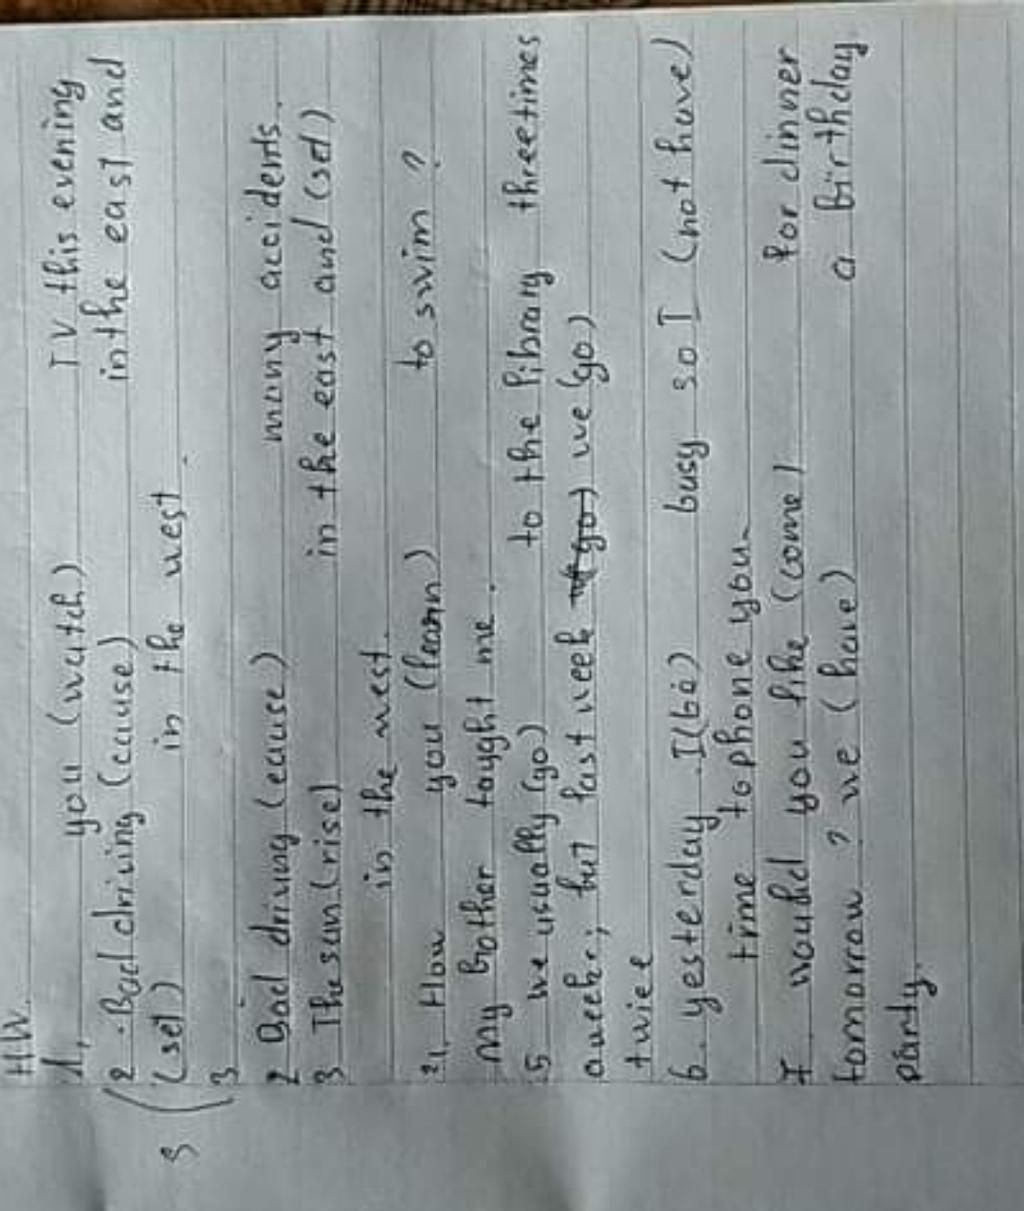 HW.
1, you (watch) TV this evening
2. Bad driving (cause) in the east and
(set) in the west.
3
3
2 Bad driving (cause) many accidents.
3 The sun (rise) in the east and (set)
in the west.
4, How you (learn) to swim?
My Brother taught me.
5 we usually (go) to the library three times
a week; but last week we (go)
twice
6. yesterday I (be) busy so I (not have)
time to phone you.
7. would you like (come) for dinner
tomorrow? we (have) a birthday
party.